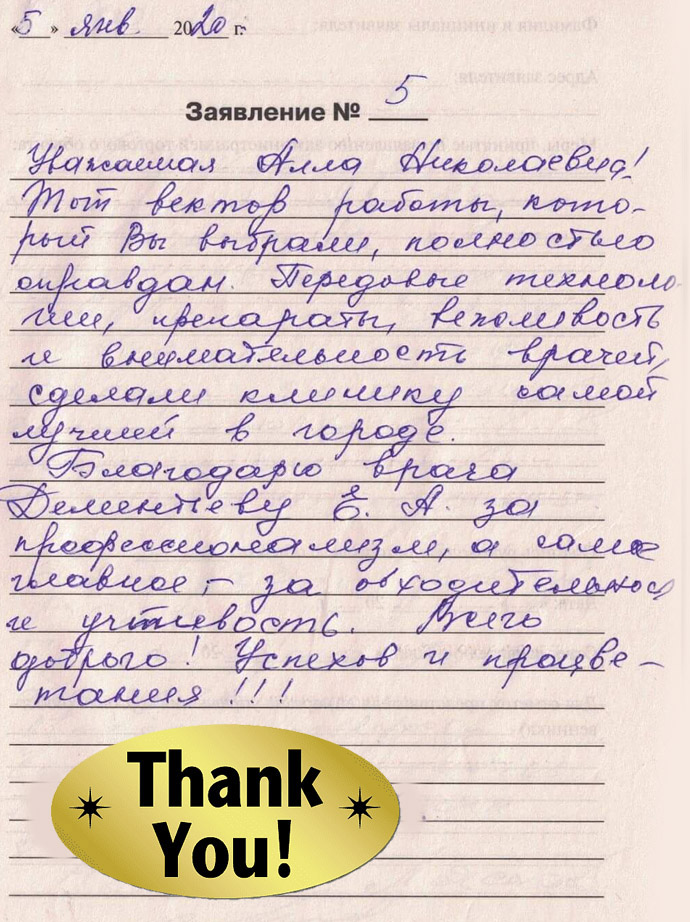 «5» янв. 2020 г.
Заявление № 5
Уважаемая Алла Николаевна!
Тот вектор работы, кото-
рый Вы выбрали, полностью
оправдан. Передовые техноло-
гии, препараты, вежливость
и внимательность врачей,
сделали клинику самой
лучшей в городе.
Благодарю врача
Дементьеву Е. А. за
профессионализм, а самое
главное, – за обходительность
и учтивость. Всего
доброго! Успехов и процве-
тания!!!
Thank
You!